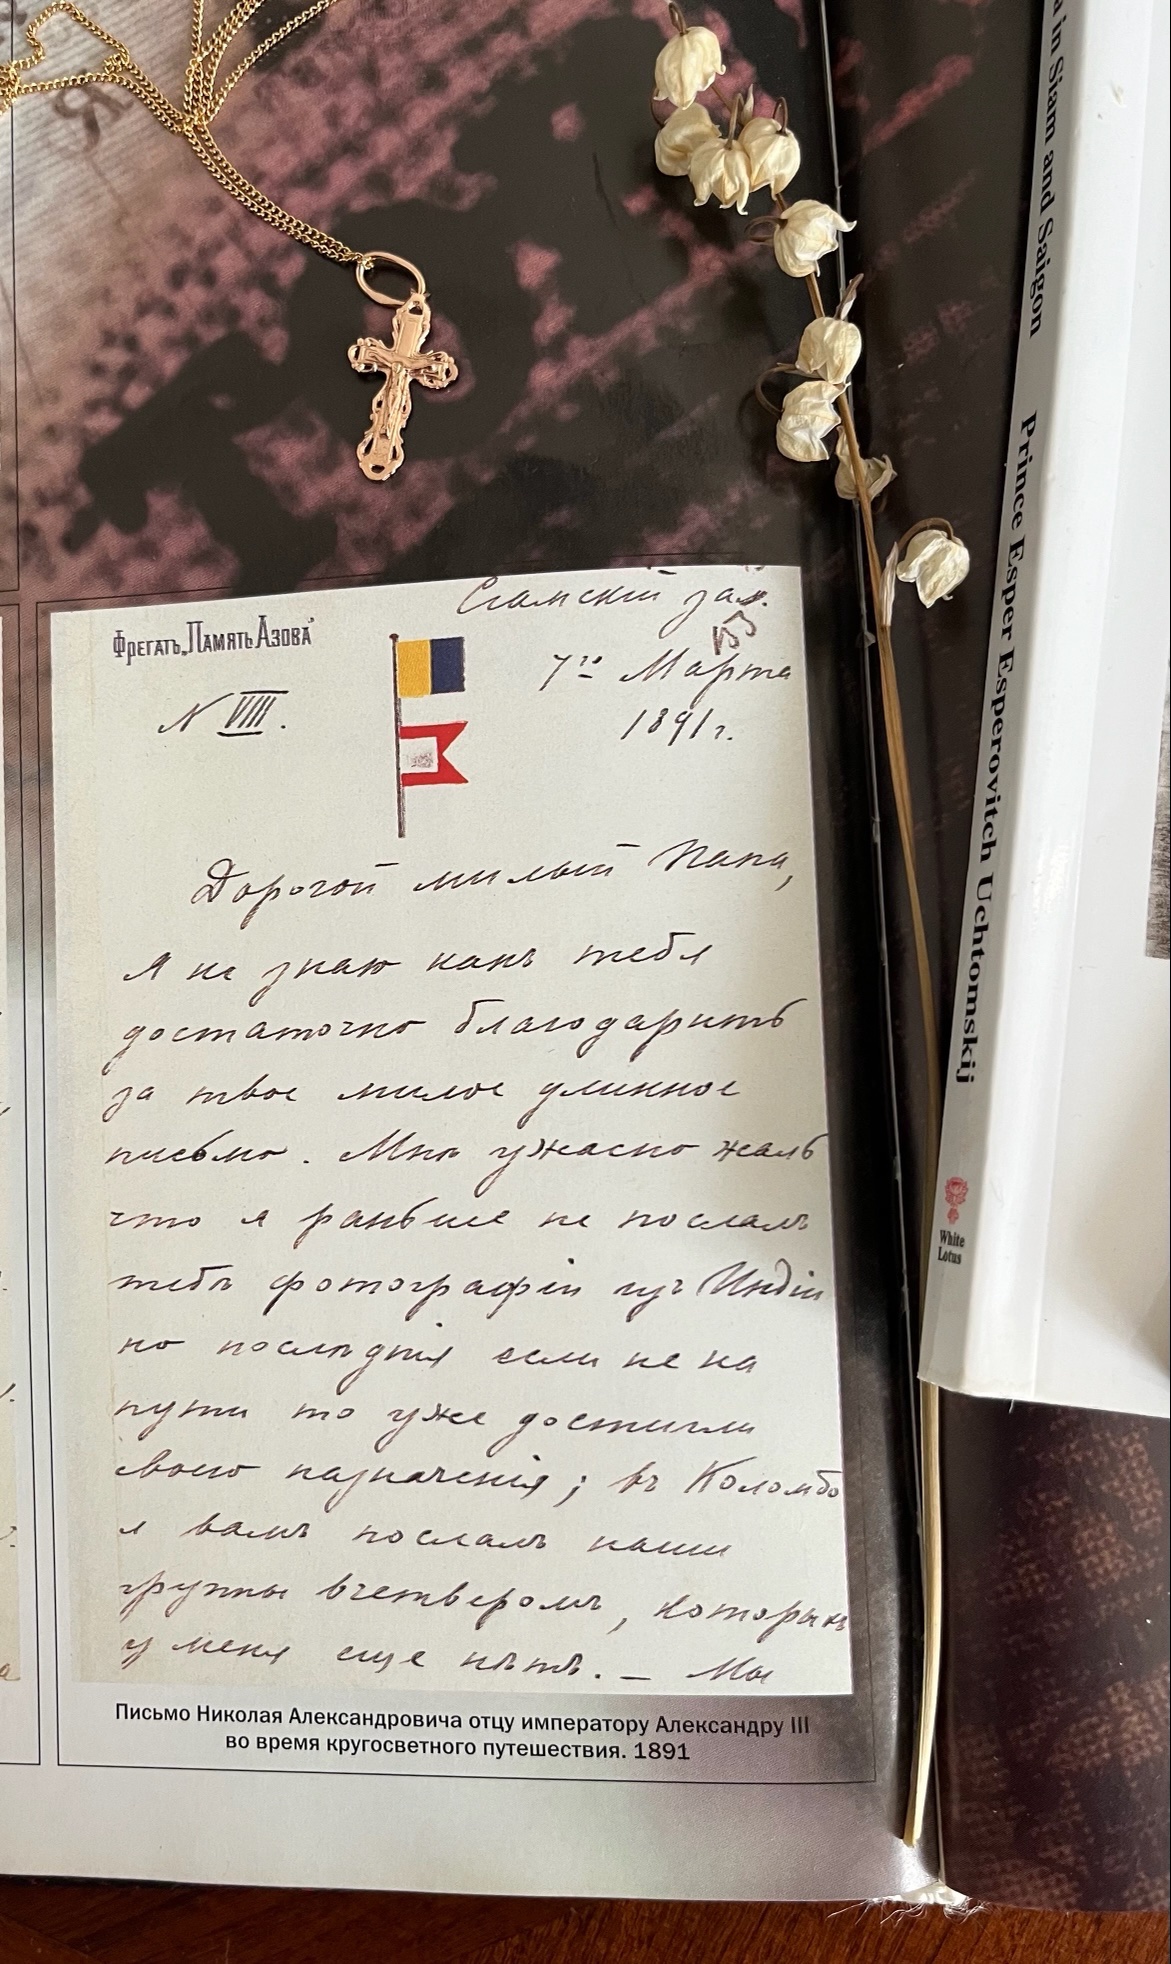 Сіамскій зал.
Фрегатъ „Память Азова”
N VIII.
7го Марта
1891 г.
Дорогой милый Папа,
Я не знаю какъ тебя
достаточно благодарить
за твое милое длинное
письмо. Мнѣ ужасно жаль
что я раньше не послалъ
тебѣ фотографіи изъ Индіи
но послѣднія если не на
пути то уже достигли
своего назначенія; въ Коломбо
я вамъ послалъ наши
группы вчетверомъ, которыхъ
у меня еще нѣтъ. — Мы
Письмо Николая Александровича отцу императору Александру III
во время кругосветного путешествия. 1891
in Siam and Saigon Prince Esper Esperovitch Uchtomskij
White
Lotus